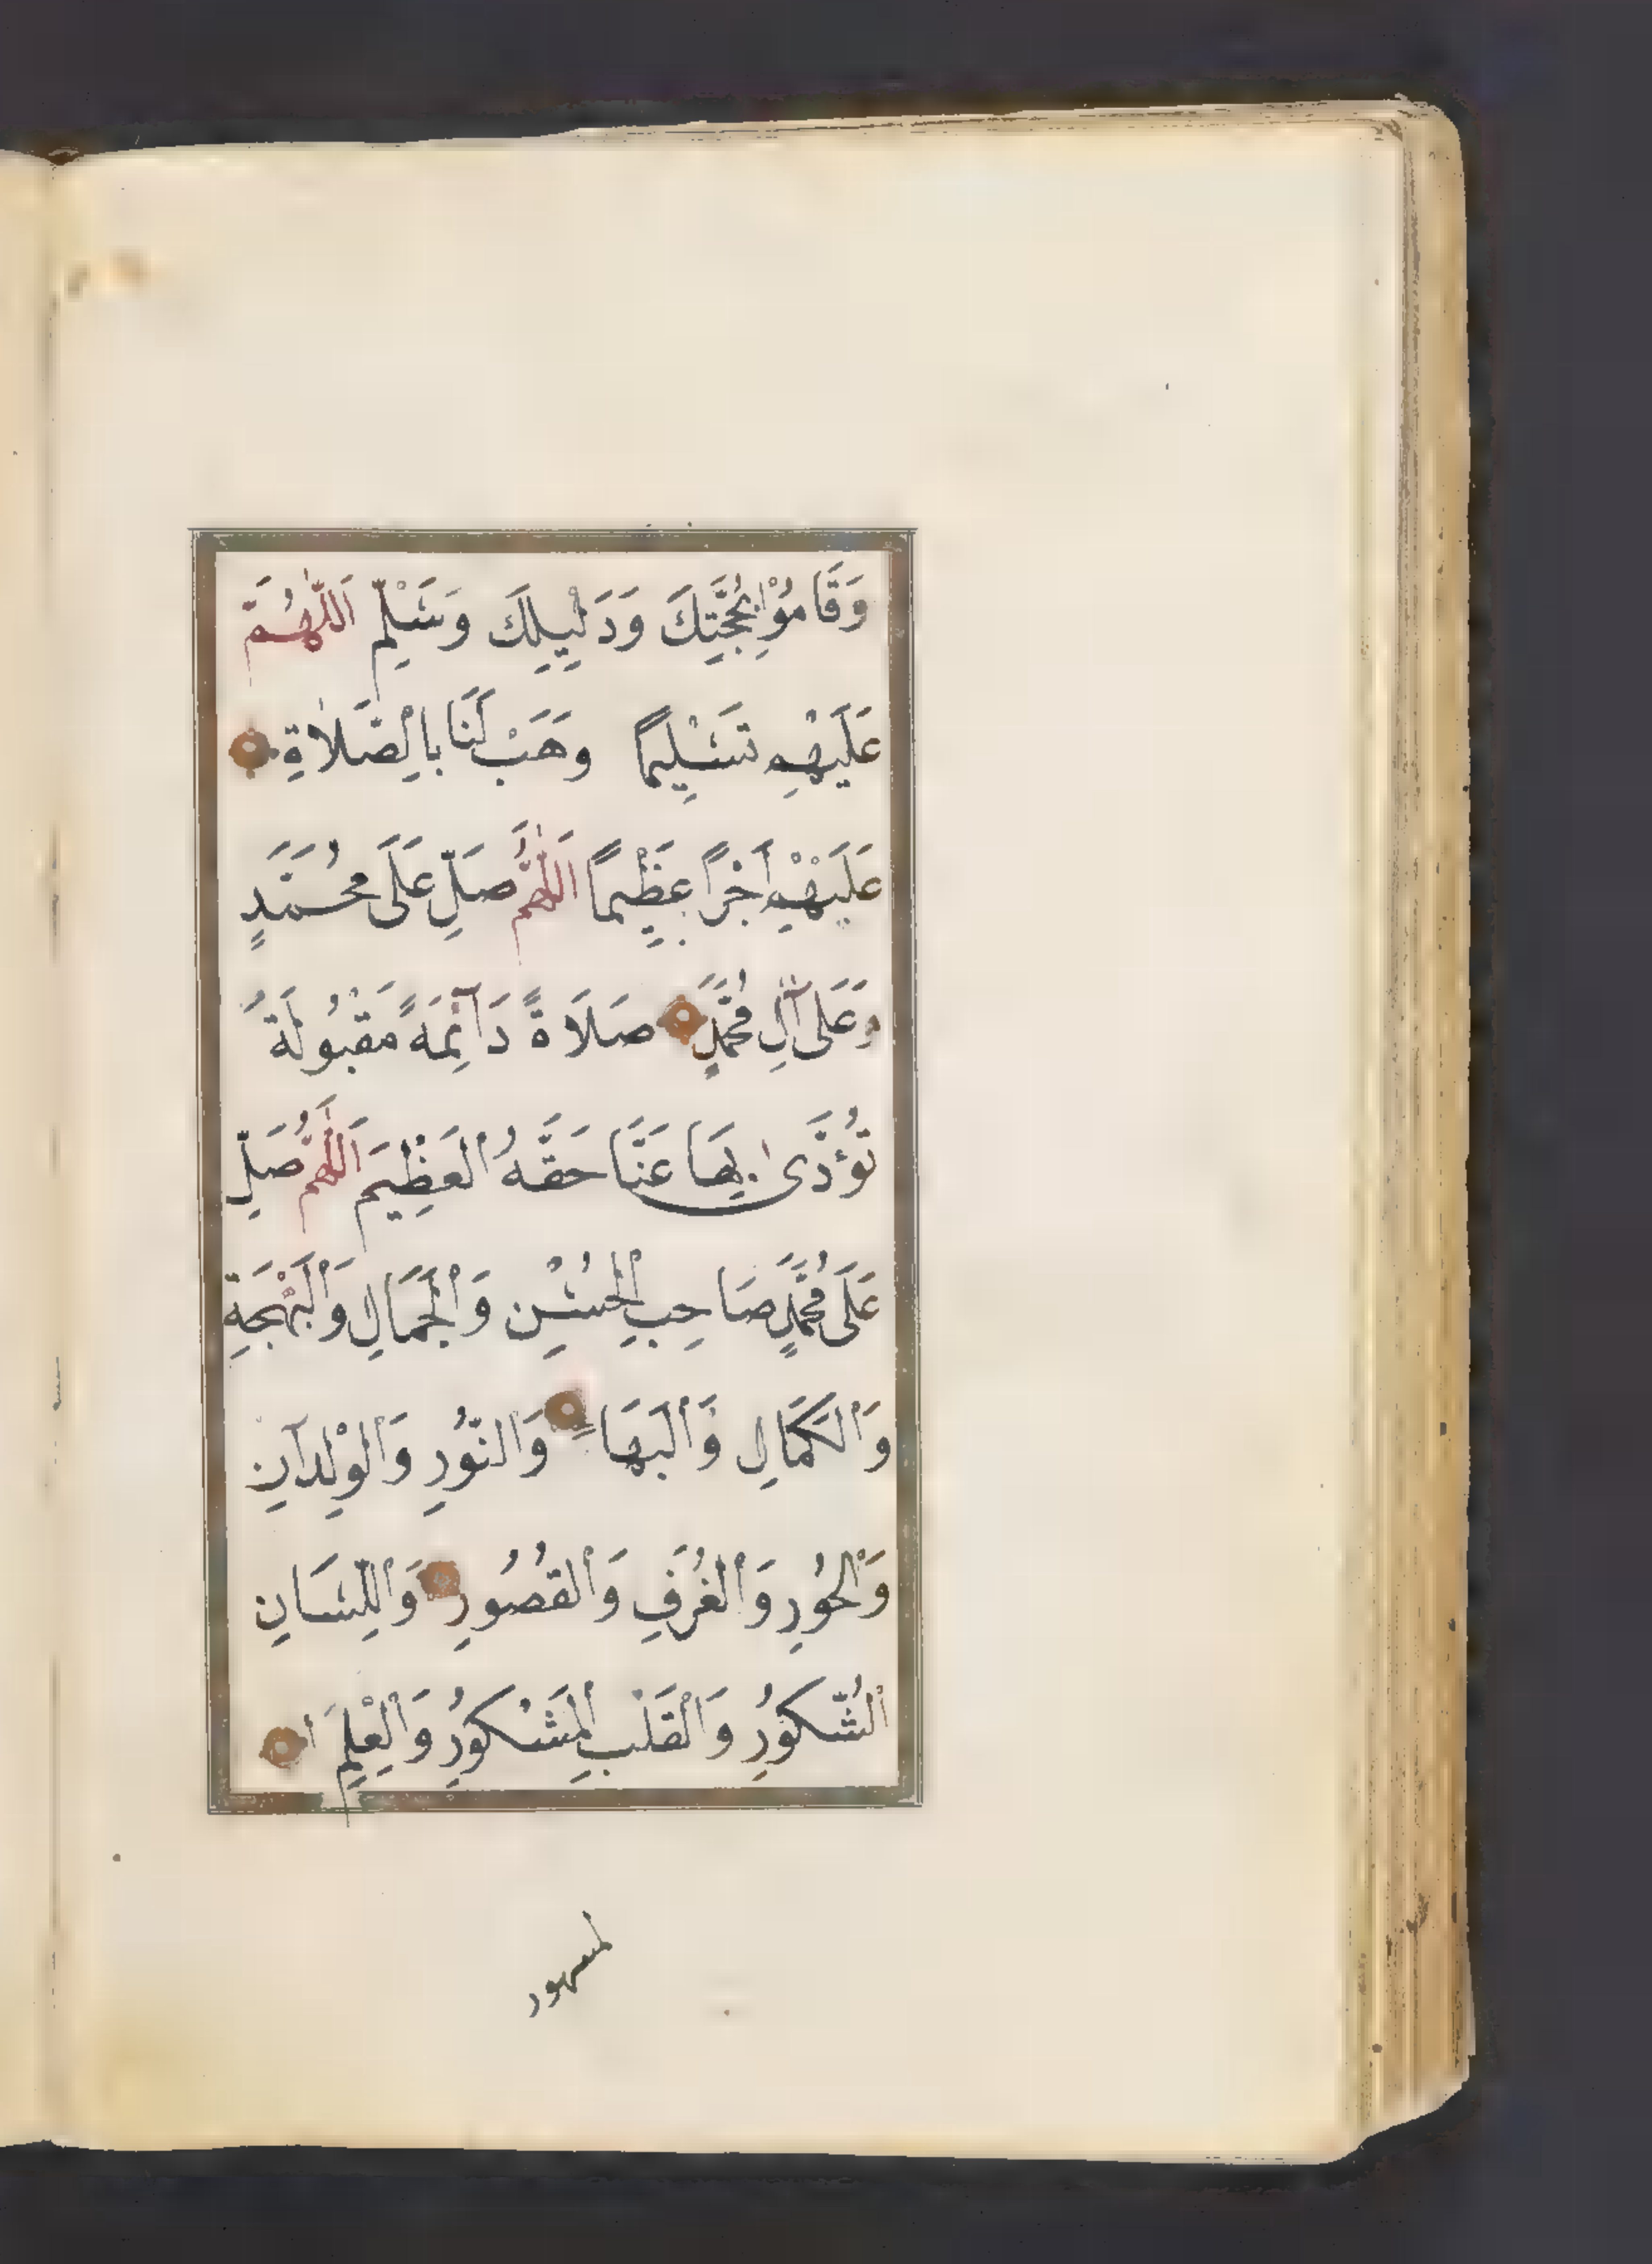 وَقَامُوْا بِحُجَّتِكَ وَدَلِيْلِكَ وَسَلِّمْ اَللّٰهُمَّ
عَلَيْهِ تَسْلِيمًا وَهَبْ لَنَا بِالصَّلَاةِ
عَلَيْهِ اَجْرًا عَظِيْمًا اَللّٰهُمَّ صَلِّ عَلَى مُحَمَّدٍ
وَعَلَى آلِ مُحَمَّدٍ صَلَاةً دَآئِمَةً مَقْبُولَةً
تُؤَدَّى بِهَا عَنَّا حَقَّهُ الْعَظِيْمَ اَللّٰهُمَّ صَلِّ
عَلَى مُحَمَّدٍ صَاحِبِ الْحُسْنِ وَالْجَمَالِ وَالْبَهْجَةِ
وَالْكَمَالِ وَالْبَهَاءِ وَالنُّورِ وَالْوِلْدَانِ
وَالْحُورِ وَالْغُرَفِ وَالْقُصُورِ وَاللِّسَانِ
الشَّكُورِ وَالْقَلْبِ الْمَشْكُورِ وَالْعِلْمِ ا
لمشهور